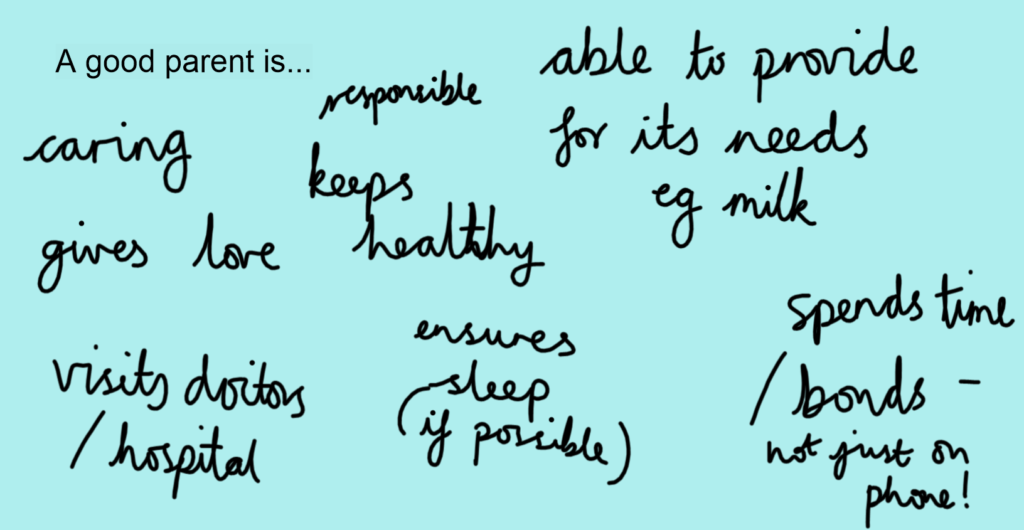 A good parent is...
responsible
able to provide
for its needs
eg milk
caring
keeps
healthy
gives love
spends time
/bonds -
not just on
phone!
ensures
sleep
(if possible)
visits doctors
/hospital